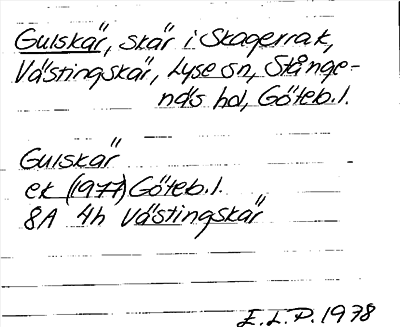 Gulskär, skär i Skagerrak,
Västingskär, Lyse sn, Stånge-
näs hd, Göteb. l.
Gulskär
ek (1977) Göteb. l.
8A 4h Västingskär
E. L. P. 1978